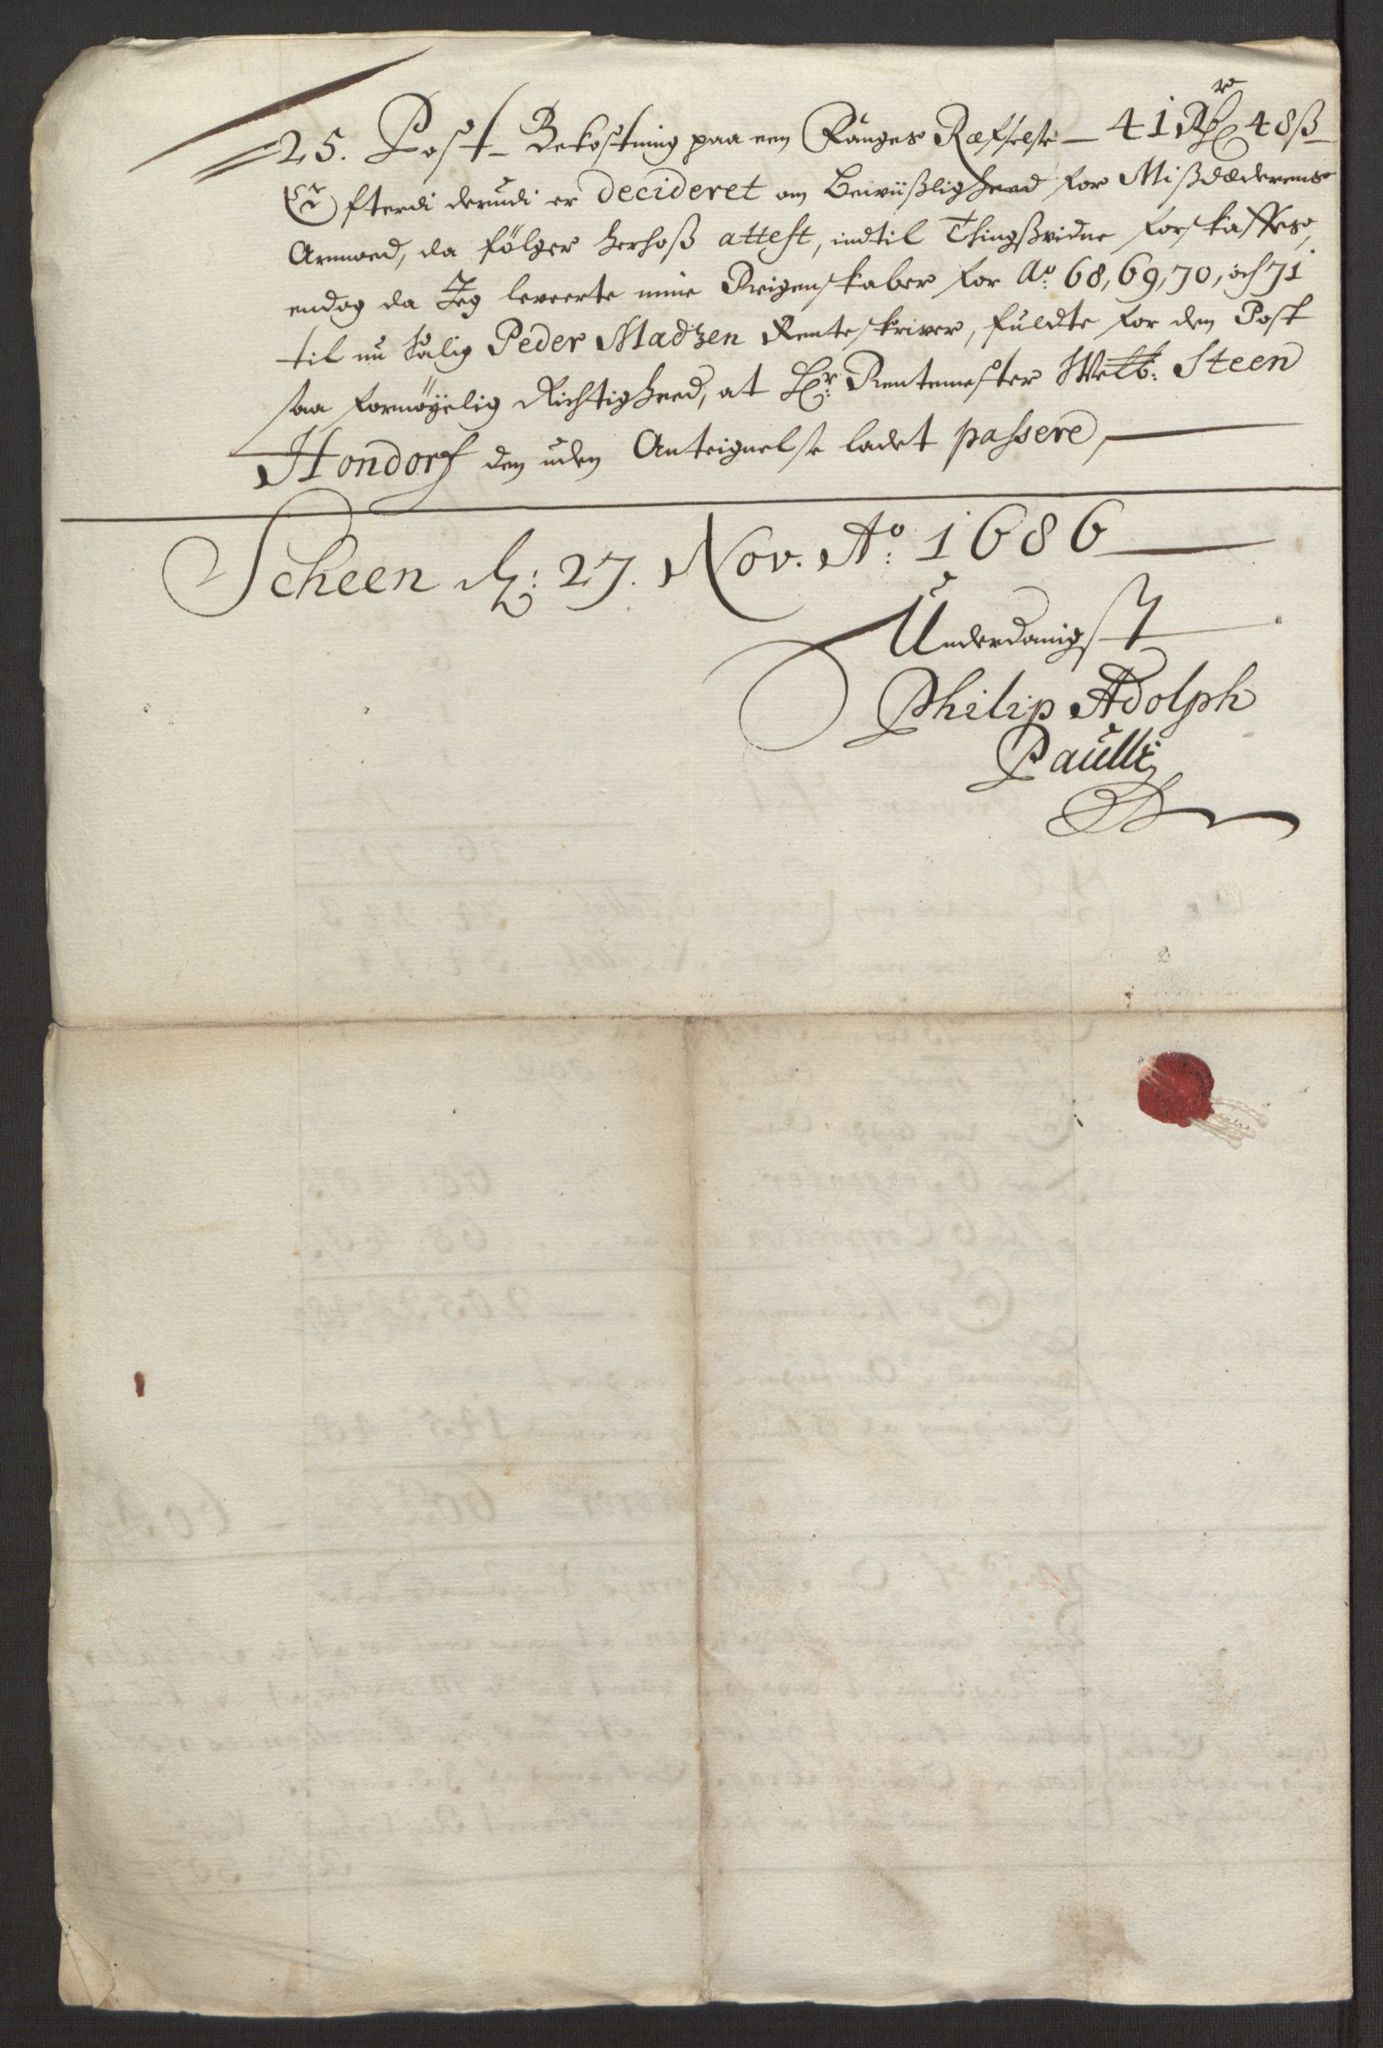 25. Post_ Bekostning paa een Fanges Ræfselse — 41 Rdr 48 ß
Efterdi derudi er decideret om Beviißligheed for Mißdæderens
Armoed, da følger herhoß attest, indtil Thingßvidne forskaffes,
endog da Jeg leverte mine Reigenskaber for Ao. 68, 69, 70, och 71
til nu Salig Peder Madzen Renteskriver, fuldte for den Post
saa fornøyelig Richtigheed, at Hr. Rentemester Welb: Steen
Hondorf den uden Anteignelse ladet passere,
Scheen d: 27. Nov. Ao. 1686
Underdanigst
Philip Adolph
Paulli